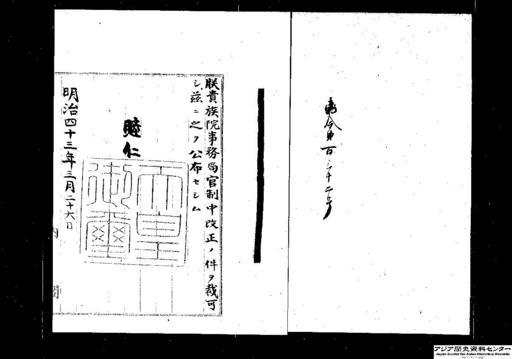 勅令第百
朕貴族院事務局官制中改正ノ件ヲ裁可
シ茲ニ之ヲ公布セシム
睦仁
天皇
御璽
明治四十三年三月二十六日
内閣
アジア歴史資料センター
Japan Center for Asian Historical Records